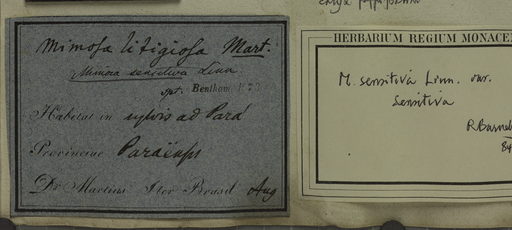 Mimosa litigiosa Mart.
Mimosa sensitiva Linn
Bentham 187
Habitat in sylvis ad Pará
Provinciae Paraënsis
Dr Martius Iter Brasil Aug
HERBARIUM REGIUM MONACEN
M. sensitiva Linn. var.
sensitiva
R Barneb